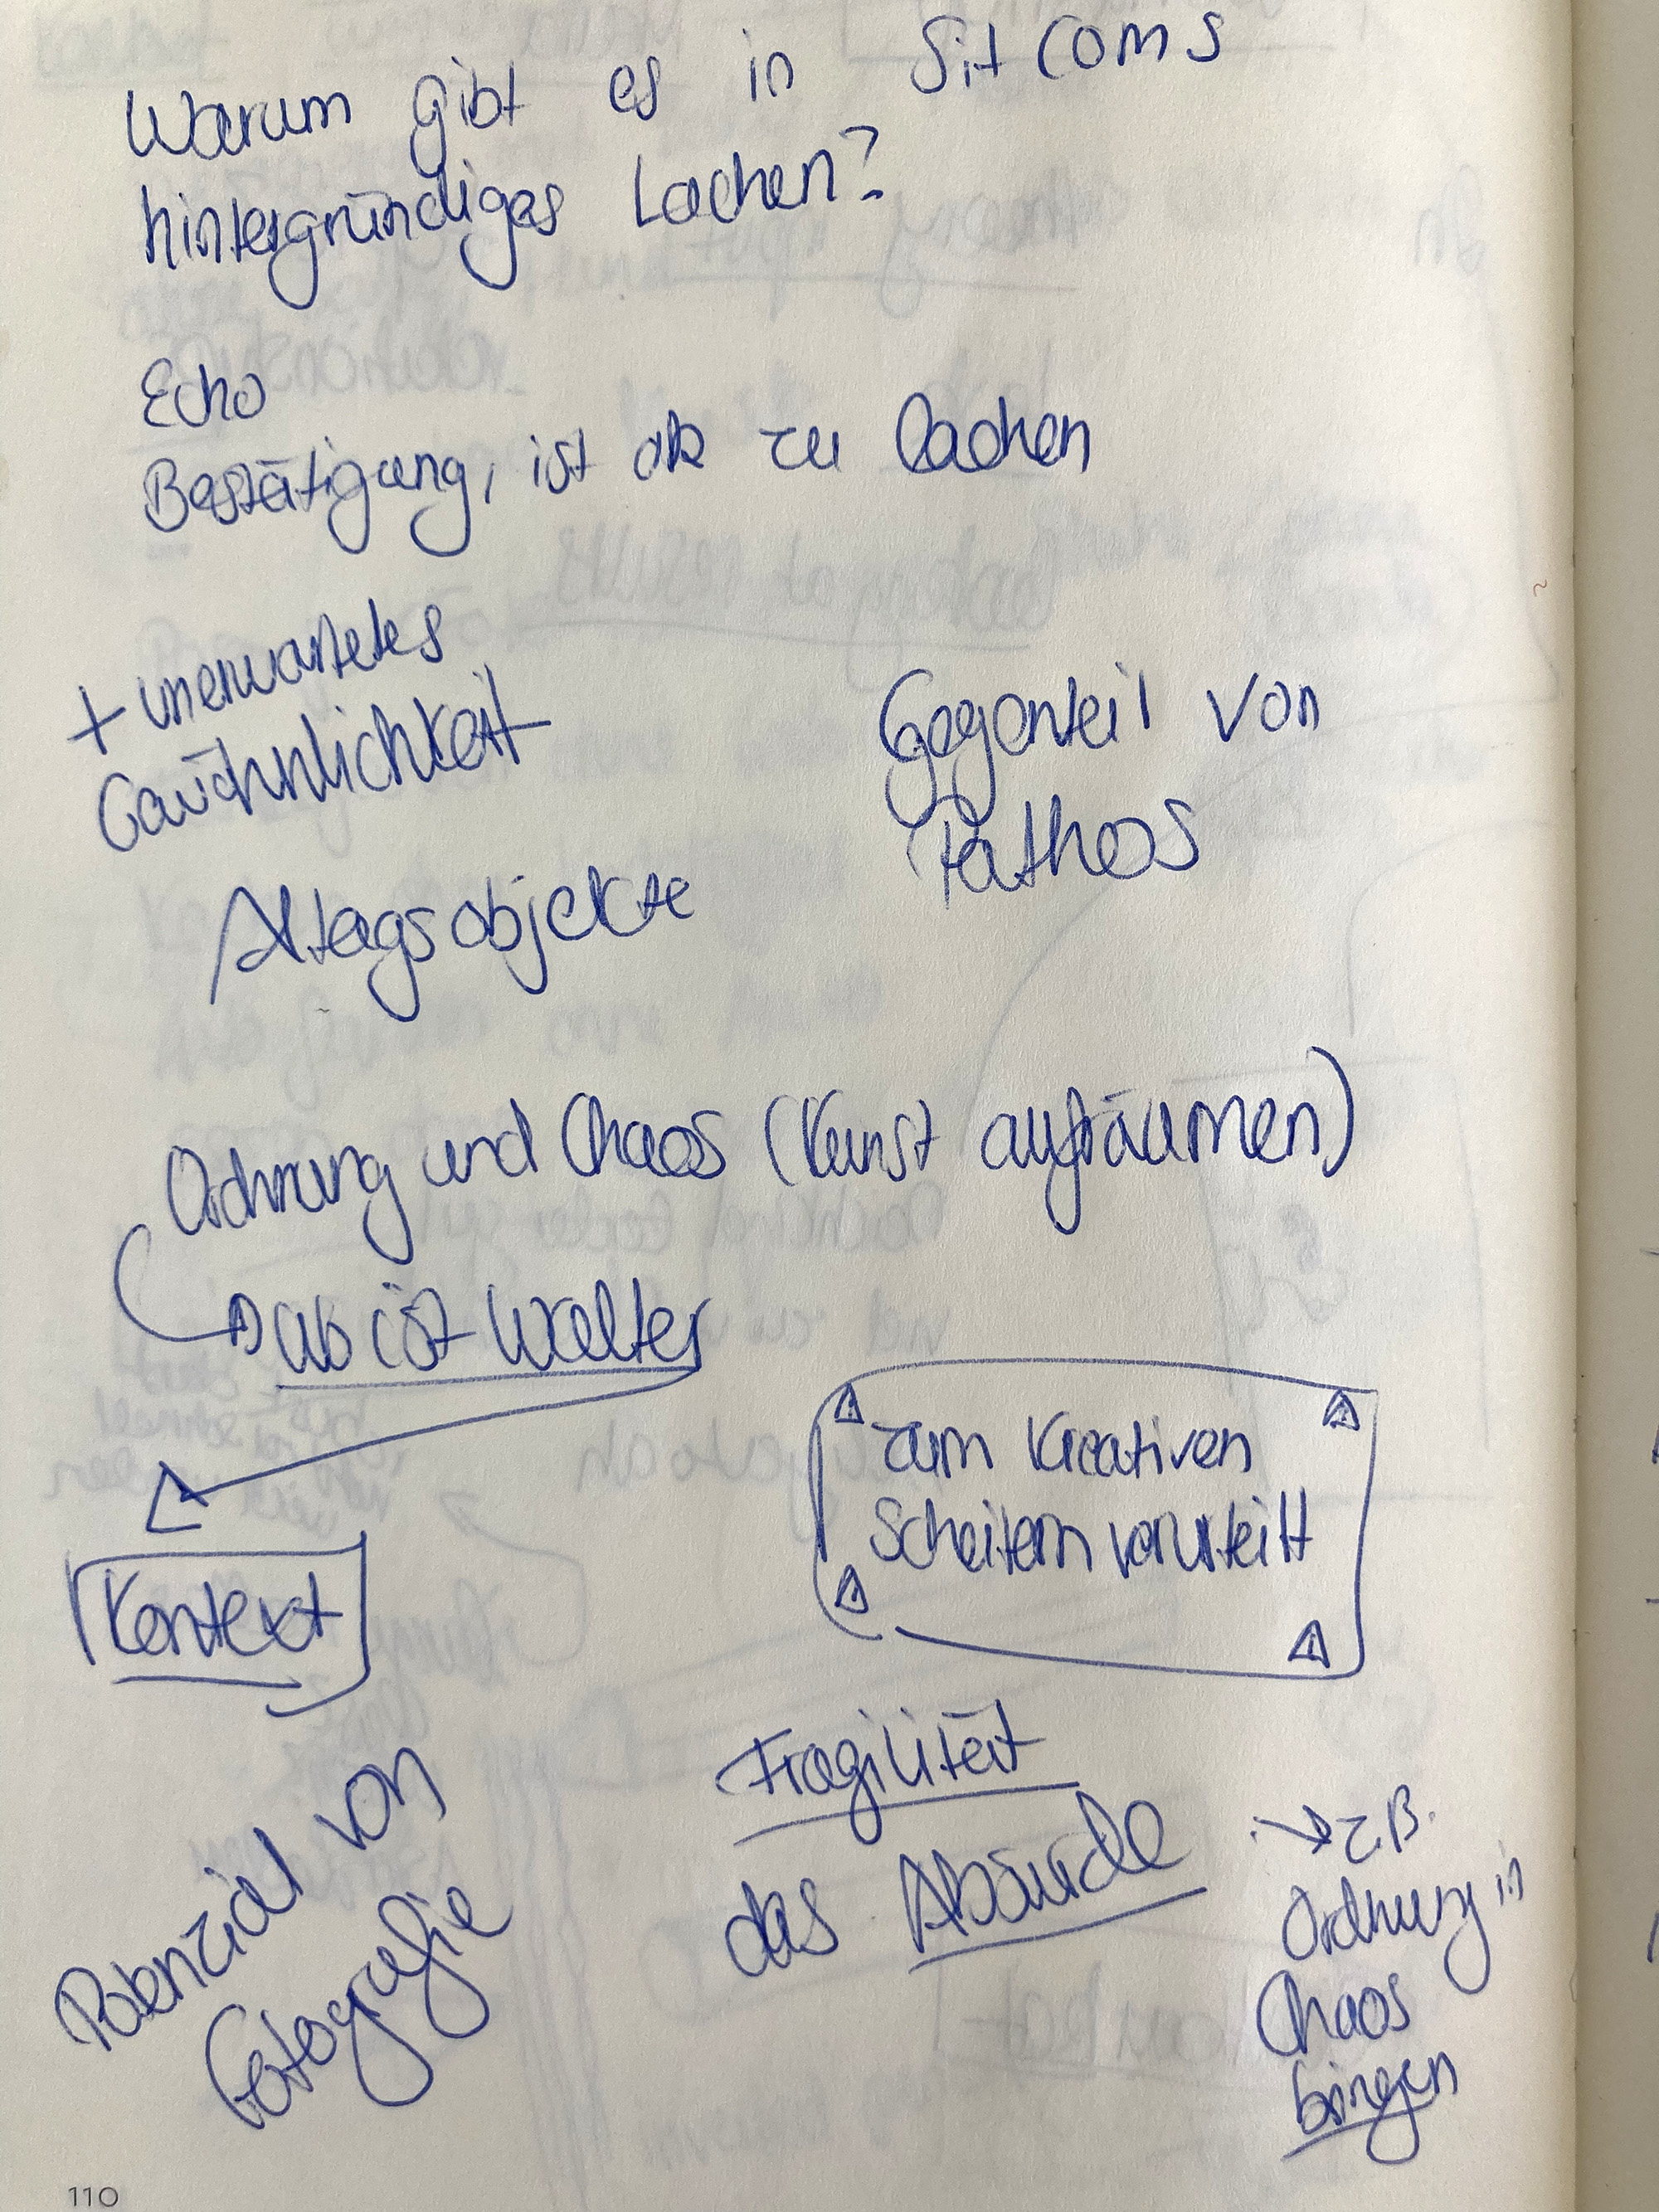 Warum gibt es in Sitcoms
hintergründiges Lachen?
Echo
Bestätigung, ist ok zu lachen
+ unerwartetes
Gewöhnlichkeit
Gegenteil von
Pathos
Alltagsobjekte
Ordnung und Chaos (Kunst aufräumen)
ist Walter
zum Kreativen
Scheitern verurteilt
Kontext
Fragilität
das Absurde
Potenzial von
Fotografie
z.B.
Ordnung in
Chaos
bringen
110